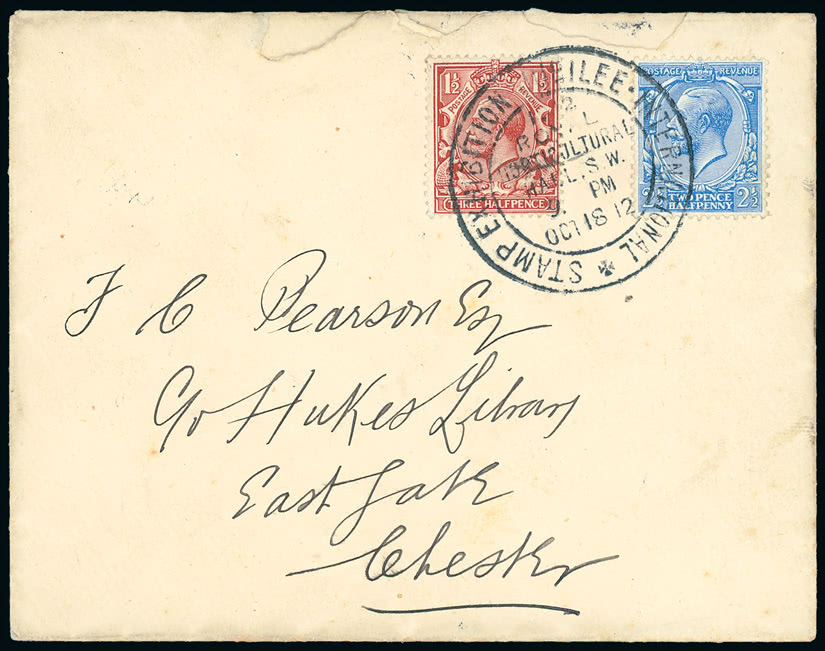 1½ 1½
POSTAGE REVENUE
THREE HALFPENCE
POSTAGE REVENUE
2½ 2½
TWO PENCE
HALFPENNY
JUBILEE · INTERNATIONAL STAMP EXHIBITION
2
ROYAL
HORTICULTURAL
HALL. S.W.
9. PM
OCT 18 12
F C Pearson Esq
c/o Hukes Library
East Gate
Chester